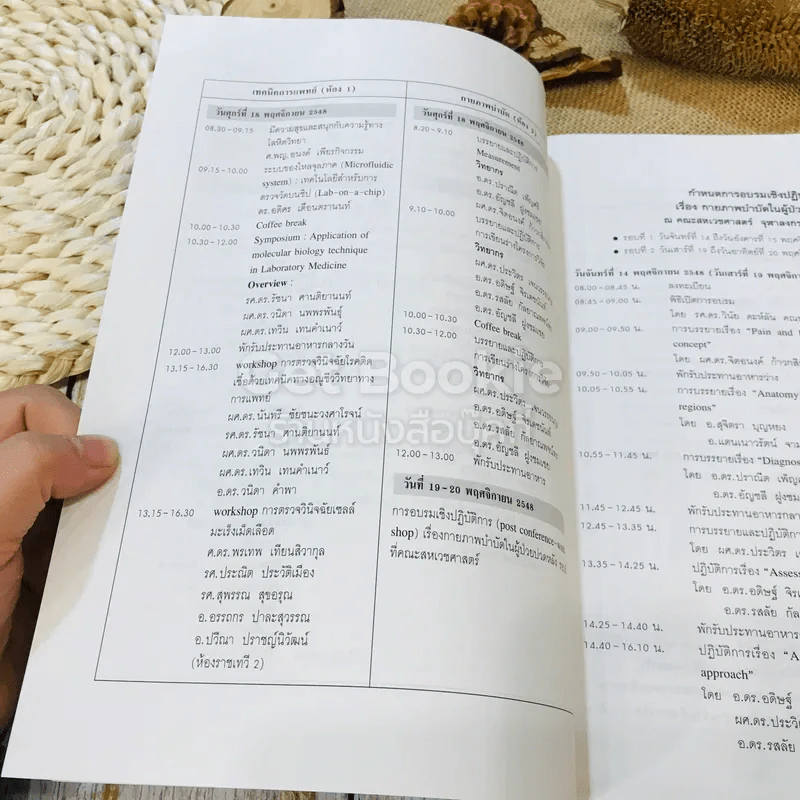 เทคนิคการแพทย์ (ห้อง 1)
วันศุกร์ที่ 18 พฤศจิกายน 2548
08.30-09.15 มีความสุขและสนุกกับความรู้ทาง
โลหิตวิทยา
ศ.พญ.อนงค์ เพียรกิจกรรม
09.15-10.00 ระบบของไหลจุลภาค (Microfluidic
system) : เทคโนโลยีสำหรับการ
ตรวจวัดบนชิป (Lab-on-a-chip)
ดร.อดิศร เตือนตรานนท์
10.00-10.30 Coffee break
10.30-12.00 Symposium : Application of
molecular biology technique
in Laboratory Medicine
Overview :
รศ.ดร.รัชนา ศานติยานนท์
ผศ.ดร.วนิดา นพพรพันธุ์
ผศ.ดร.เทวิน เทนคำเนาว์
12.00-13.00 พักรับประทานอาหารกลางวัน
13.15-16.30 workshop การตรวจวินิจฉัยโรคติด
เชื้อด้วยเทคนิคทางอณูชีววิทยาทาง
การแพทย์
ผศ.ดร.นันทรี ชัยชนะวงศาโรจน์
รศ.ดร.รัชนา ศานติยานนท์
ผศ.ดร.วนิดา นพพรพันธ์
ผศ.ดร.เทวิน เทนคำเนาว์
อ.ดร.วนิดา คำพา
13.15-16.30 workshop การตรวจวินิจฉัยเซลล์
มะเร็งเม็ดเลือด
ศ.ดร.พรเทพ เทียนสิวากุล
รศ.ประณิต ประวัติเมือง
รศ.สุพรรณ สุขอรุณ
อ.อรรถกร ปาละสุวรรณ
อ.ปวีณา ปราชญ์นิวัฒน์
(ห้องราชเทวี 2)
กายภาพบำบัด (ห้อง
วันศุกร์ที่ 18 พฤศจิกายน 2548
8.20-9.10 บรรยายและปฏิบัติการ
Measurement
วิทยากร
อ.ดร.ปราณีต เพ็ญศรี
อ.ดร.อัญชลี ฝูงชมเชย
9.10-10.00 ผศ.ดร.จิตอนงค์
บรรยายและปฏิบัติการ
การเขียนร่างโครงการวิจัย
วิทยากร
ผศ.ดร.ประวิตร เจนวรรธนะกุล
อ.ดร.อดิษฐ์ จิรเดชนันท์
อ.ดร.รสลัย กัลยาณพจน์พร
อ.ดร.อัญชลี ฝูงชมเชย
10.00-10.30 Coffee break
10.30-12.00 บรรยายและปฏิบัติการ
การเขียนร่างโครงการวิจัย
วิทยากร
ผศ.ดร.ประวิตร เจนวรรธนะกุล
อ.ดร.อดิษฐ์ จิรเดชนันท์
อ.ดร.รสลัย กัลยาณพจน์พร
อ.ดร.อัญชลี ฝูงชมเชย
12.00-13.00 พักรับประทานอาหาร
วันที่ 19-20 พฤศจิกายน 2548
การอบรมเชิงปฏิบัติการ (post conference-work
shop) เรื่องกายภาพบำบัดในผู้ป่วยปวดหลัง
ที่คณะสหเวชศาสตร์
กำหนดการอบรมเชิงปฏิบั
เรื่อง กายภาพบำบัดในผู้ป่วย
ณ คณะสหเวชศาสตร์ จุฬาลงกร
• รอบที่ 1 วันจันทร์ที่ 14 ถึงวันอังคารที่ 15 พฤศ
• รอบที่ 2 วันเสาร์ที่ 19 ถึงวันอาทิตย์ที่ 20 พฤศ
วันจันทร์ที่ 14 พฤศจิกายน 2548 (วันเสาร์ที่ 19 พฤศจิก
08.00-08.45 น. ลงทะเบียน
08.45-09.00 น. พิธีเปิดการอบรม
โดย รศ.ดร.วินัย ดะห์ลัน คณบ
09.00-09.50 น. การบรรยายเรื่อง "Pain and
concept"
โดย ผศ.ดร.จิตอนงค์ ก้าวกสิก
09.50-10.05 น. พักรับประทานอาหารว่าง
10.05-10.55 น. การบรรยายเรื่อง "Anatomy
regions"
โดย อ.สุจิตรา บุญหยง
อ.แดนเนาวรัตน์ จาม
10.55-11.45 น. การบรรยายเรื่อง "Diagnos
โดย อ.ดร.ปราณีต เพ็ญศ
อ.ดร.อัญชลี ฝูงชม
11.45-12.45 น. พักรับประทานอาหารกลา
12.45-13.35 น. การบรรยายและปฏิบัติกา
โดย ผศ.ดร.ประวิตร เจ
13.35-14.25 น. ปฏิบัติการเรื่อง "Assess
โดย อ.ดร.อดิษฐ์ จิรเ
อ.ดร.รสลัย กัล
14.25-14.40 น. พักรับประทานอาหาร
14.40-16.10 น. ปฏิบัติการเรื่อง "A
approach"
โดย อ.ดร.อดิษฐ์
ผศ.ดร.ประวิ
อ.ดร.รสลัย
Get Bookie
ร้านหนังสือบุ๊คกี้